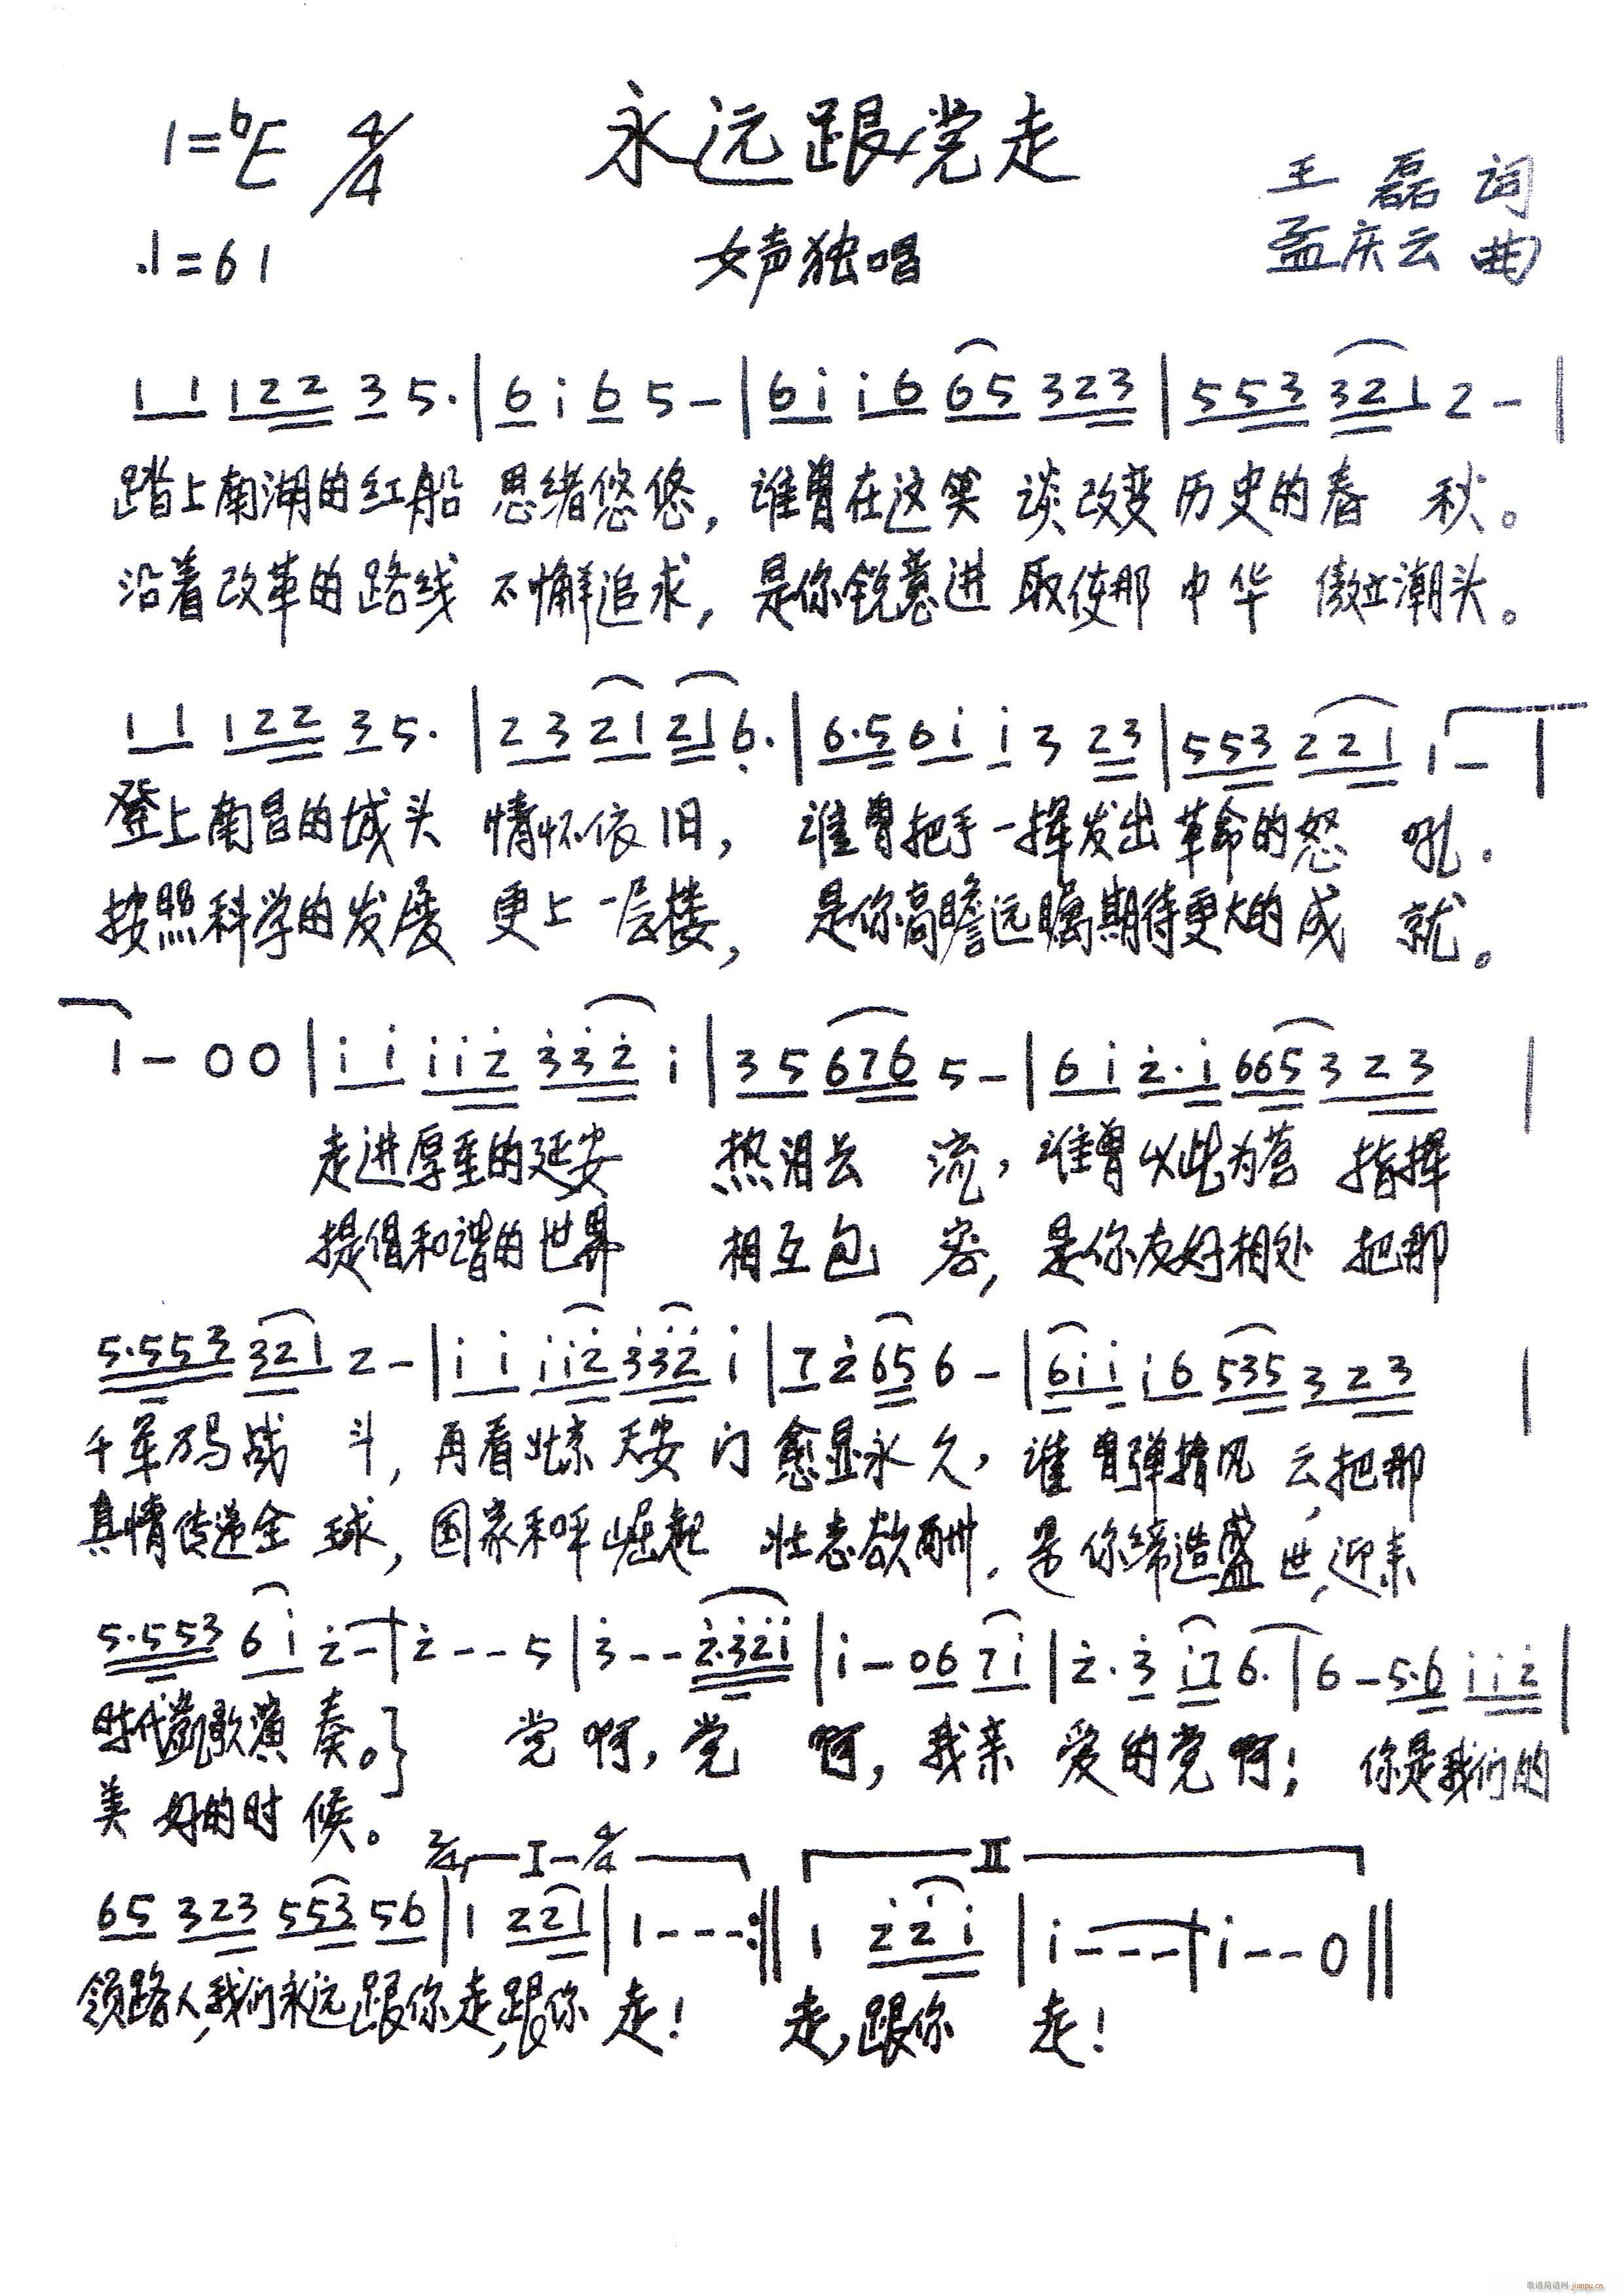 1=ᵇE 4/4 永远跟党走
王磊 词
♩=61 女声独唱 孟庆云 曲
1 1 1 2 2 3 5· | 6 i 6 5 - | 6 i i 6 6 5 3 2 3 | 5 5 3 3 2 1 2 - |
踏上南湖的红船 思绪悠悠，谁曾在这笑 谈改变历史的春 秋。
沿着改革的路线 不懈追求，是你锐意进 取使那 中华 傲立潮头。
1 1 1 2 2 3 5· | 2 3 2 1 2 1 6· | 6·5 6 i i 3 2 3 | 5 5 3 2 2 1 1 - |
登上南昌的城头 情怀依旧，谁曾把手一挥发出革命的怒 吼．
按照科学的发展 更上一层楼，是你高瞻远瞩期待更大的成 就。
1 - 0 0 | i i i i 2 3 3 2 i | 3 5 6 7 6 5 - | 6 i 2·i 6 6 5 3 2 3 |
走进厚重的延安 热泪长 流，谁曾以此为营 指挥
提倡和谐的世界 相互包 容，是你友好相处 把那
5·5 5 3 3 2 1 2 - | i i i i 2 3 3 2 i | 7 2 6 5 6 - | 6 i i i 6 5 3 5 3 2 3 |
千军万马战 斗，再看北京天安门愈显永久，谁曾弹指风 云，把那
真情传递全 球，国家和平崛起 壮志欲酬．是你缔造盛世，迎来
5·5 5 3 6 i 2 - | 2 - - - 5 | 3 - - 2·3 2 i | i - 0 6 7 i | 2·3 i 7 6· | 6 - 5·6 i i 2 |
时代凯歌演 奏。} 党啊，党 啊，我亲 爱的党啊！ 你是我们的
美好的时 候。
2/4 I 4/4 II
6 5 3 2 3 5 5 3 5 6 | 1 2 2 1 | 1 - - - :‖ 1 2 2 i | i - - - | i - - 0 ‖
领路人，我们永远跟你走，跟你 走！ 走，跟你 走！
歌谱简谱网 jianpu.cn